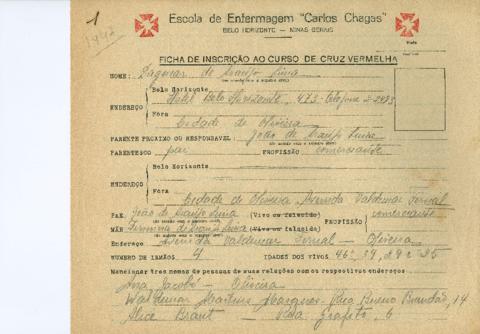 1
Escola de Enfermagem "Carlos Chagas"
BELO HORIZONTE — MINAS GERAIS
FICHA DE INSCRIÇÃO AO CURSO DE CRUZ VERMELHA
NOME: Dagmar de Araujo Lima
Belo Horizonte
Hotel Belo Horizonte, 473- telefone
ENDEREÇO
Fóra
Cidade de Oliveira
PARENTE PROXIMO OU RESPONSAVEL: João de Araujo Lima
PARENTESCO pai PROFISSÃO comerciante
Belo Horizonte
ENDEREÇO:
Fóra
Cidade de Oliveira Avenida Valdemar
PAE João de Araujo Lima (Vivo ou falecido) PROFISSÃO comerciante
MÃE (Viva ou falecida)
Endereço Avenida Valdemar — Oliveira
NUMERO DE IRMÃOS 4 IDADES DOS VIVOS
Mencionar tres nomes de pessoas de suas relações com os respectivos endereços
Ana Jacobi - Oliveira
Waldemar Martins Marques - Rua Bueno Brandão, 14
Alice Brant - Rua